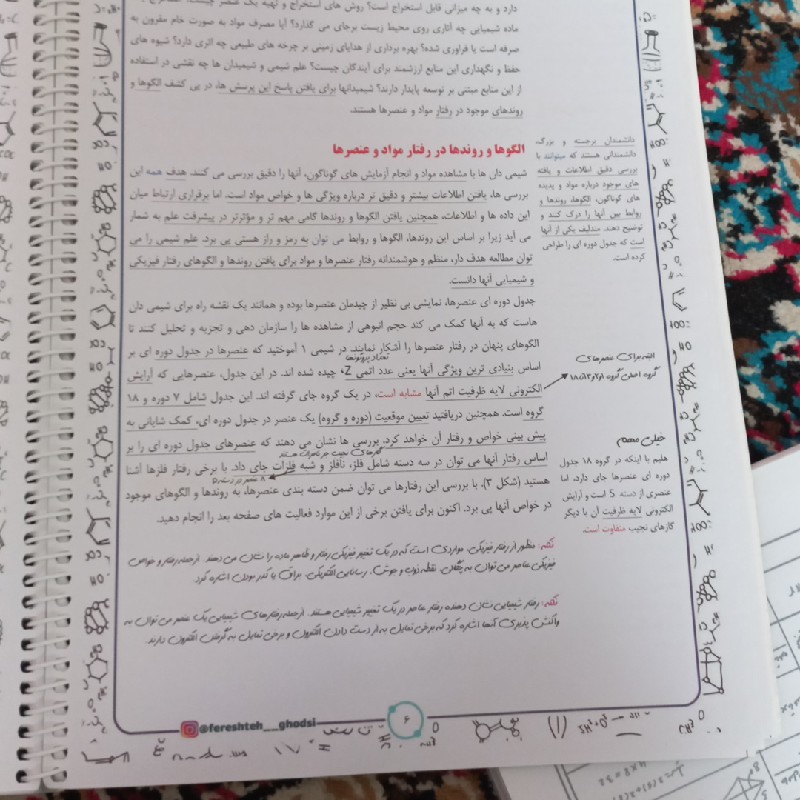 دارد و به چه میزانی قابل استخراج است؟ روش های استخراج و تهیه یک عنصر
ماده شیمیایی چه آثاری روی محیط زیست برجای می گذارد؟ آیا مصرف مواد به صورت خام مقرون به
صرفه است یا فراوری شده؟ بهره برداری از هدایای زمینی بر چرخه های طبیعی چه اثری دارد؟ شیوه های
حفظ و نگهداری این منابع ارزشمند برای آیندگان چیست؟ علم شیمی و شیمیدان ها چه نقشی در استفاده
از این منابع مبتنی بر توسعه پایدار دارند؟ شیمیدانها برای یافتن پاسخ این پرسش ها، در پی کشف الگوها و
روندهای موجود در رفتار مواد و عنصرها هستند.
الگوها و روندها در رفتار مواد و عنصرها
شیمی دان ها با مشاهده مواد و انجام آزمایش های گوناگون، آنها را دقیق بررسی می کنند. هدف همه این
بررسی ها، یافتن اطلاعات بیشتر و دقیق تر درباره ویژگی ها و خواص مواد است. اما برقراری ارتباط میان
این داده ها و اطلاعات، همچنین یافتن الگوها و روندها گامی مهم تر و مؤثرتر در پیشرفت علم به شمار
می آید زیرا بر اساس این روندها، الگوها و روابط می توان به رمز و راز هستی پی برد. علم شیمی را می
توان مطالعه هدف دار، منظم و هوشمندانه رفتار عنصرها و مواد برای یافتن روندها و الگوهای رفتار فیزیکی
و شیمیایی آنها دانست.
جدول دوره ای عنصرها، نمایشی بی نظیر از چیدمان عنصرها بوده و همانند یک نقشه راه برای شیمی دان
هاست که به آنها کمک می کند حجم انبوهی از مشاهده ها را سازمان دهی و تجزیه و تحلیل کنند تا
الگوهای پنهان در رفتار عنصرها را آشکار نمایند. در شیمی ۱ آموختید که عنصرها در جدول دوره ای بر
تعداد پروتون‌ها
اساس بنیادی ترین ویژگی آنها یعنی عدد اتمی Z، چیده شده اند. در این جدول، عنصرهایی که آرایش
الکترونی لایه ظرفیت اتم آنها مشابه است، در یک گروه جای گرفته اند. این جدول شامل ۷ دوره و ۱۸
گروه است. همچنین دریافتید تعیین موقعیت (دوره و گروه) یک عنصر در جدول دوره ای، کمک شایانی به
پیش بینی خواص و رفتار آن خواهد کرد. بررسی ها نشان می دهند که عنصرهای جدول دوره ای را بر
اساس رفتار آنها می توان در سه دسته شامل فلز، نافلز و شبه فلزات جای داد. با برخی رفتار فلزها آشنا
هستید (شکل ۳). با بررسی این رفتارها می توان ضمن دسته بندی عنصرها، به روندها و الگوهای موجود
در خواص آنها پی برد. اکنون برای یافتن برخی از این موارد فعالیت های صفحه بعد را انجام دهید.
نکته: منظور از رفتار فیزیکی، مواردی است که در یک تغییر فیزیکی رفتار و ظاهر ماده را نشان می دهند. ازجمله رفتار و خواص
فیزیکی عناصر می توان به چگالی، نقطه ذوب و جوش، رسانایی الکتریکی، براق یا کدر بودن اشاره کرد.
نکته: رفتار شیمیایی نشان دهنده رفتار عناصر در یک تغییر شیمیایی هستند. ازجمله رفتارهای شیمیایی یک عنصر می توان به
واکنش پذیری آنها اشاره کرد که برخی تمایل به از دست دادن الکترون و برخی تمایل به گرفتن الکترون دارند.
دانشمندان برجسته و بزرگ،
دانشمندانی هستند که میتوانند با
بررسی دقیق اطلاعات و یافته
های موجود درباره مواد و پدیده
های گوناگون، الگوها، روندها و
روابط بین آنها را درک کنند و
توضیح دهند. مندلیف یکی از آنها
است که جدول دوره ای را طراحی
کرده است.
البته برای عنصرهای
گروه اصلی
خیلی مهم
هلیم با اینکه در گروه ۱۸ جدول
دوره ای عنصرها جای دارد، اما
عنصری از دسته S است و آرایش
الکترونی لایه ظرفیت آن با دیگر
گازهای نجیب متفاوت است.
۶
@fereshteh__ghodsi